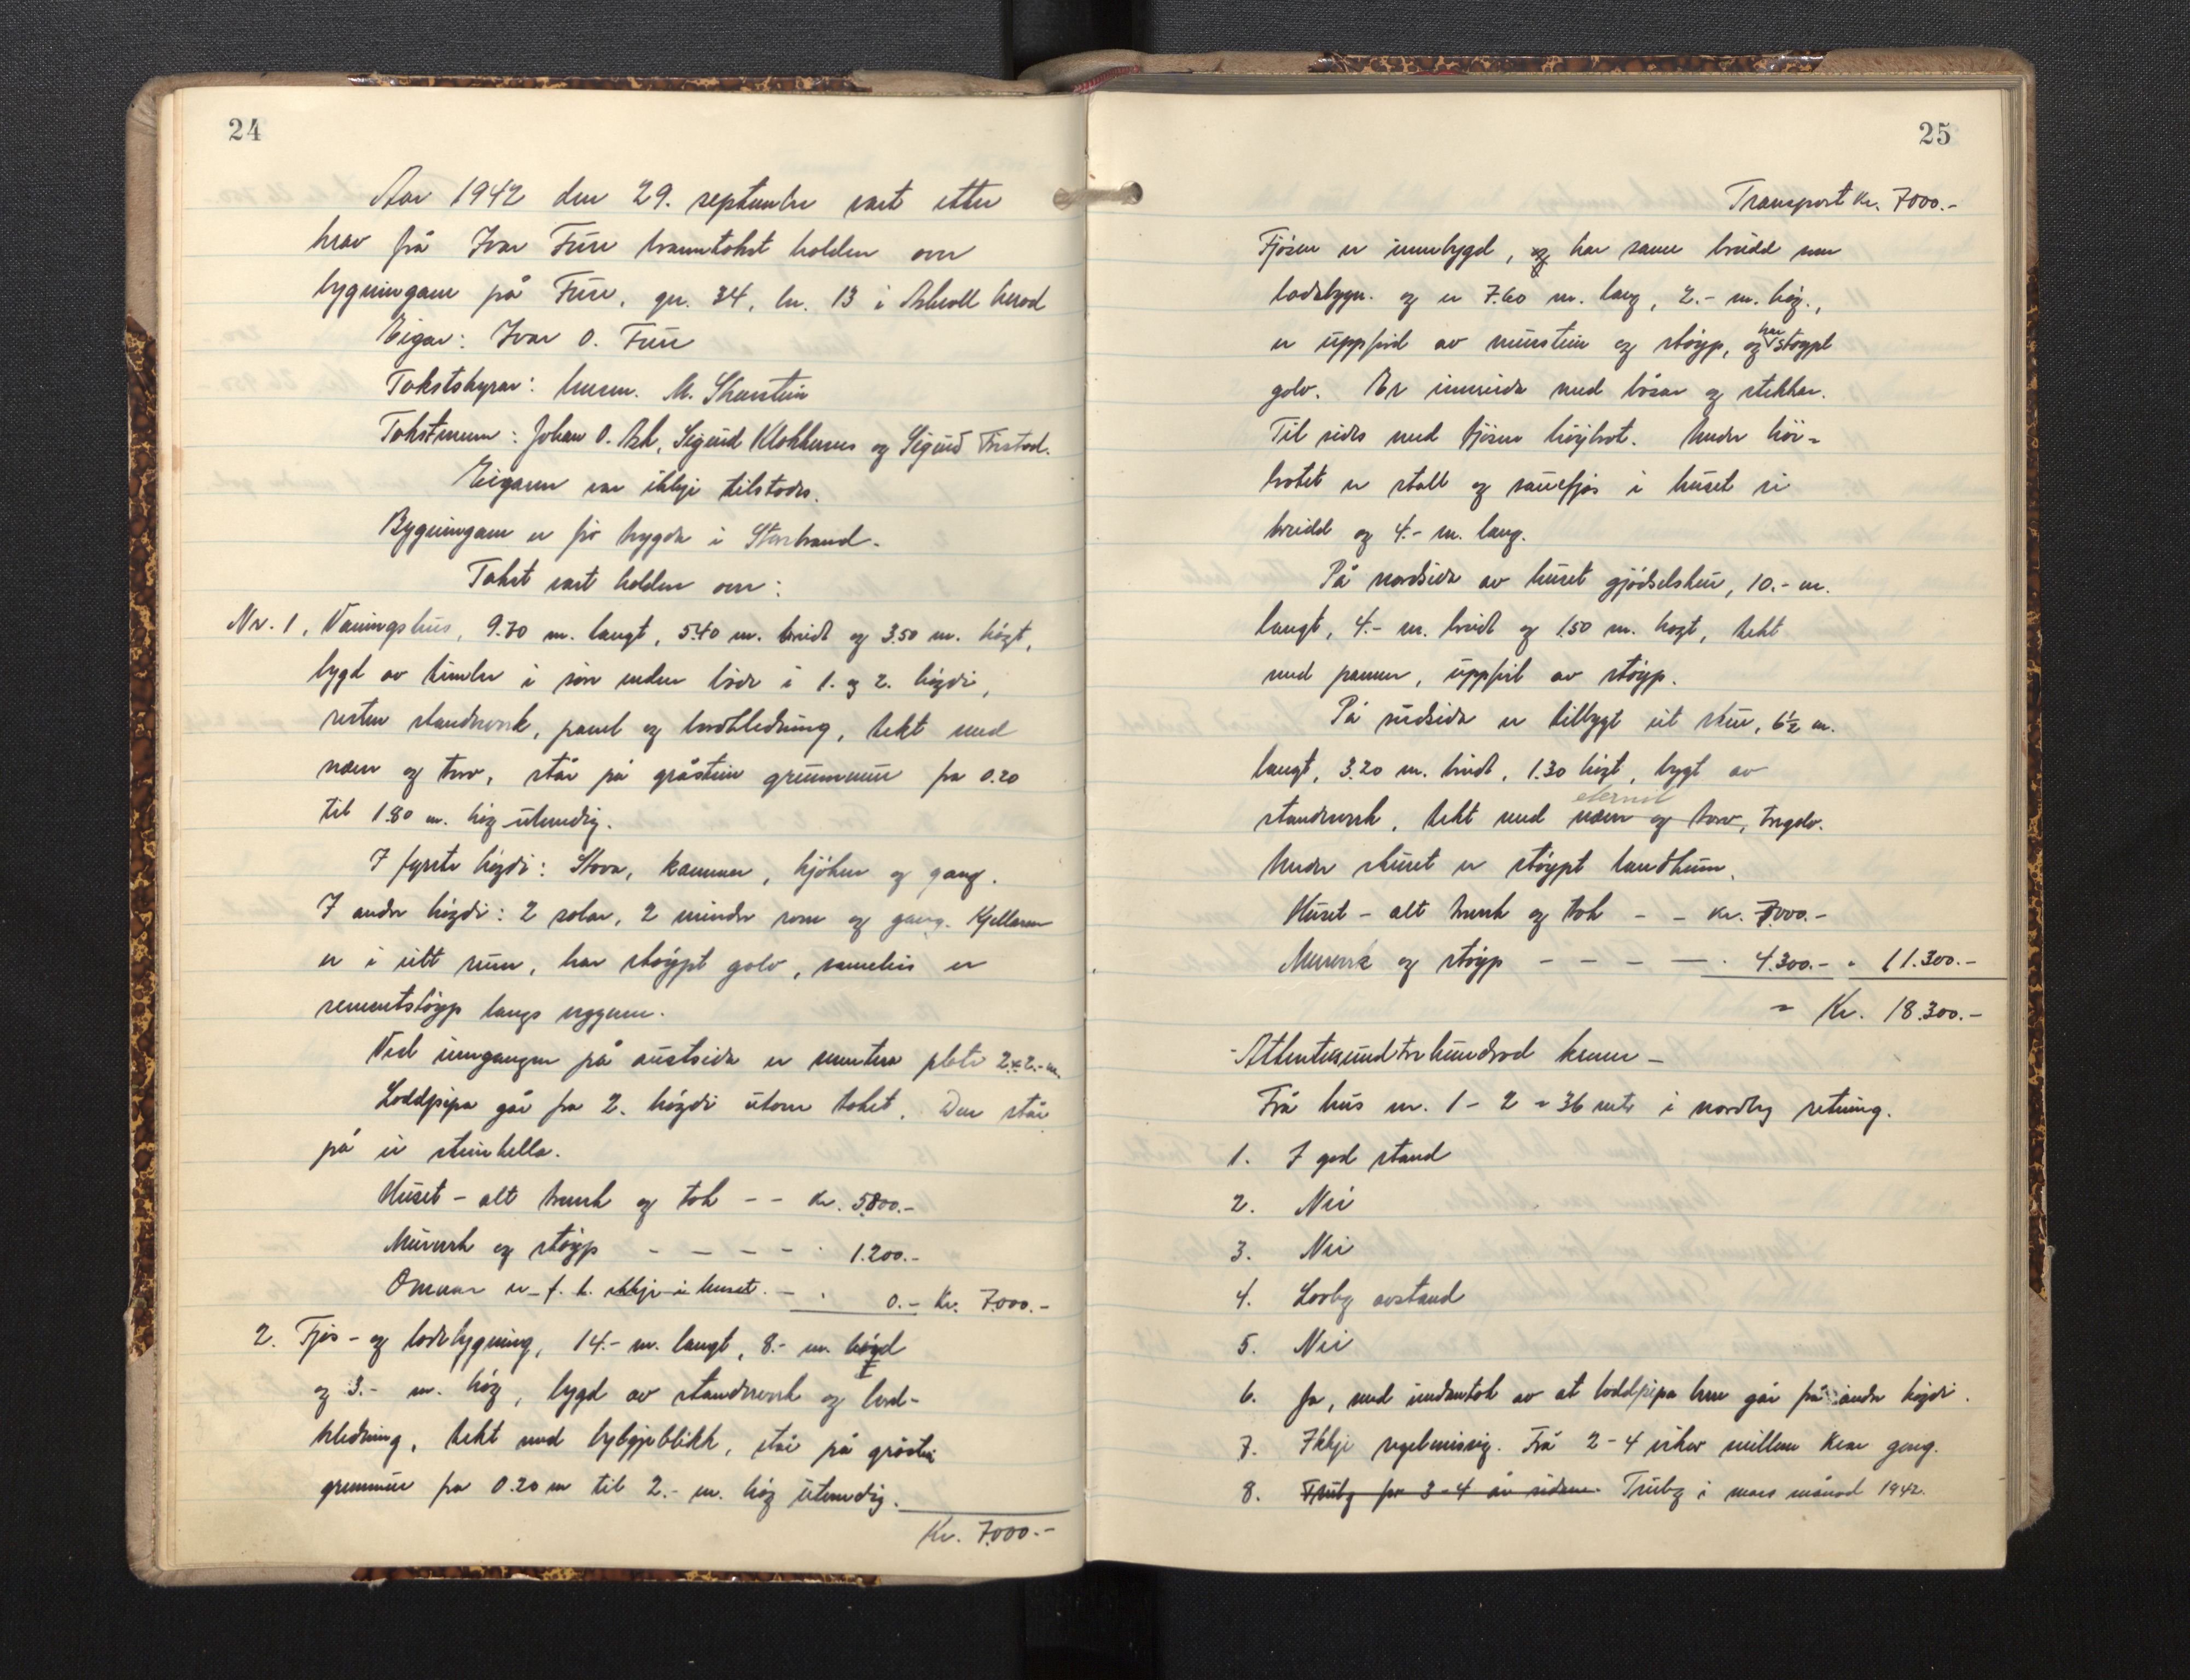 24
Aar 1942 den 29. september vart etter
krav frå Ivar Fure branntakst halden over
bygningane på Fure, gr. 34, br. 13 i Askvoll herad
Eigar: Ivar O. Fure
Takststyrar: lensm. M. Skarstein
Takstmenn: Johan O. Ask, Sigurd Klokkernes og Sigurd Frestad.
Eigaren var ikkje tilstades.
Bygningane er før trygda i Storbrand.
Takst vart halden over:
Nr. 1, Våningshus, 9.70 m. langt, 5.40 m. breidt og 3.50 m. høgt,
bygd av timber i søre enden både i 1. og 2. høgdi,
resten standverk, panel og bordkledning, tekt med
næver og torv, står på gråstein grunnmur fra 0.20
til 1.80 m. høg utvendig.
I fyrste høgdi: Stova, kammer, kjøken og gang.
I andre høgdi: 2 salar, 2 mindre rom og gang. Kjellaren
er i eitt rum, har støypt golv, sameleis er
sementstøyp langs veggene.
Ved inngangen på austsida er sementera plate 2 x 2.- m.
Loddpipa går fra 2. høgdi utom taket. Den står
på ei steinhella.
Huset - alt treverk og tak - - Kr. 5.800.-
Murverk og støyp - - - - " 1.200.-
Omnar er f. t. ikkje i huset. - " 0.- Kr. 7.000.-
2. Fjøs- og lødebygning, 14.- m. langt, 8.- m. breid
og 3.- m. høg, bygd av standverk og bord-
kledning, tekt med bylgjeblikk, står på gråstein
grunnmur fra 0.20 m til 2.- m. høg utvendig.
Kr. 7.000.-
25
Transport Kr. 7000.-
Fjøsen er innbygd, og har same breidd som
lødebygn. og er 7.60 m. lang, 2.- m. høg.,
er uppførd av murstein og støyp, og har støypt
golv. Er innreida med båsar og stekkar.
Til sides med fjøsen høybrot. Under høy-
brotet er stall og sauefjøs i huset si
breidd og 4.- m. lang.
På nordsida av huset gjødselshus, 10.- m.
langt, 4.- m. breidt og 1.50 m. høgt, tekt
med panner, uppført av støyp.
På sudsida er tilbygt eit skur, 6½ m.
langt, 3.20 m. breidt, 1.30 høgt, bygt av
eternit
standverk, tekt med næver og torv, tregolv.
Under skuret er støypt landkum.
Huset - alt treverk og tak - - Kr. 7.000.-
Murverk og støyp - - - - " 4.300.- " 11.300.-
= Kr. 18.300.-
- Attentusundtrehundrad kroner -
Frå hus nr. 1 - 2 = 36 mtr i nordleg retning.
1. I god stand
2. Nei
3. Nei
4. Lovleg avstand
5. Nei
6. Ja, med undantak av at loddpipa berre går frå andre høgdi.
7. Ikkje regelmessig. Frå 2-4 vikor millom kvar gong.
8. Truleg for 3-4 år sidan. Truleg i mars månad 1942.